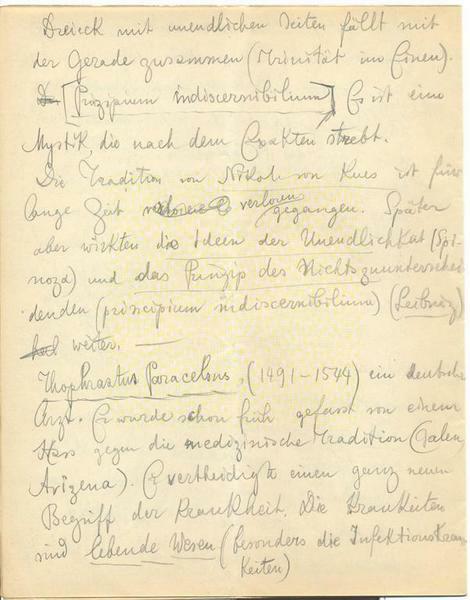 Dreieck mit unendlichen Seiten fällt mit
der Gerade zusammen (Trinität im Einen).
[Prozipium indiscernibilium] Es ist eine
Mystik, die nach dem Exakten strebt.
Die Tradition von Nikolaus von Kues ist für
lange Zeit verloren gegangen. Später
aber wirkten die Ideen der Unendlichkat (Spi-
noza) und das Prinzip des Nichtszuunterschei-
denden (principium indiscernibilium) (Leibniz)
weiter. —
Thophrastus Paracelsus, (1491-1544) ein deutscher
Arzt. Er wurde schon früh gefasst von einem
Hass gegen die medizinische Tradition (Galen,
Avizena). Er vertheidigte einen ganz neuen
Begriff der Krankheit. Die Krankeiten
sind lebende Wesen (besonders die Infektionskran-
keiten)